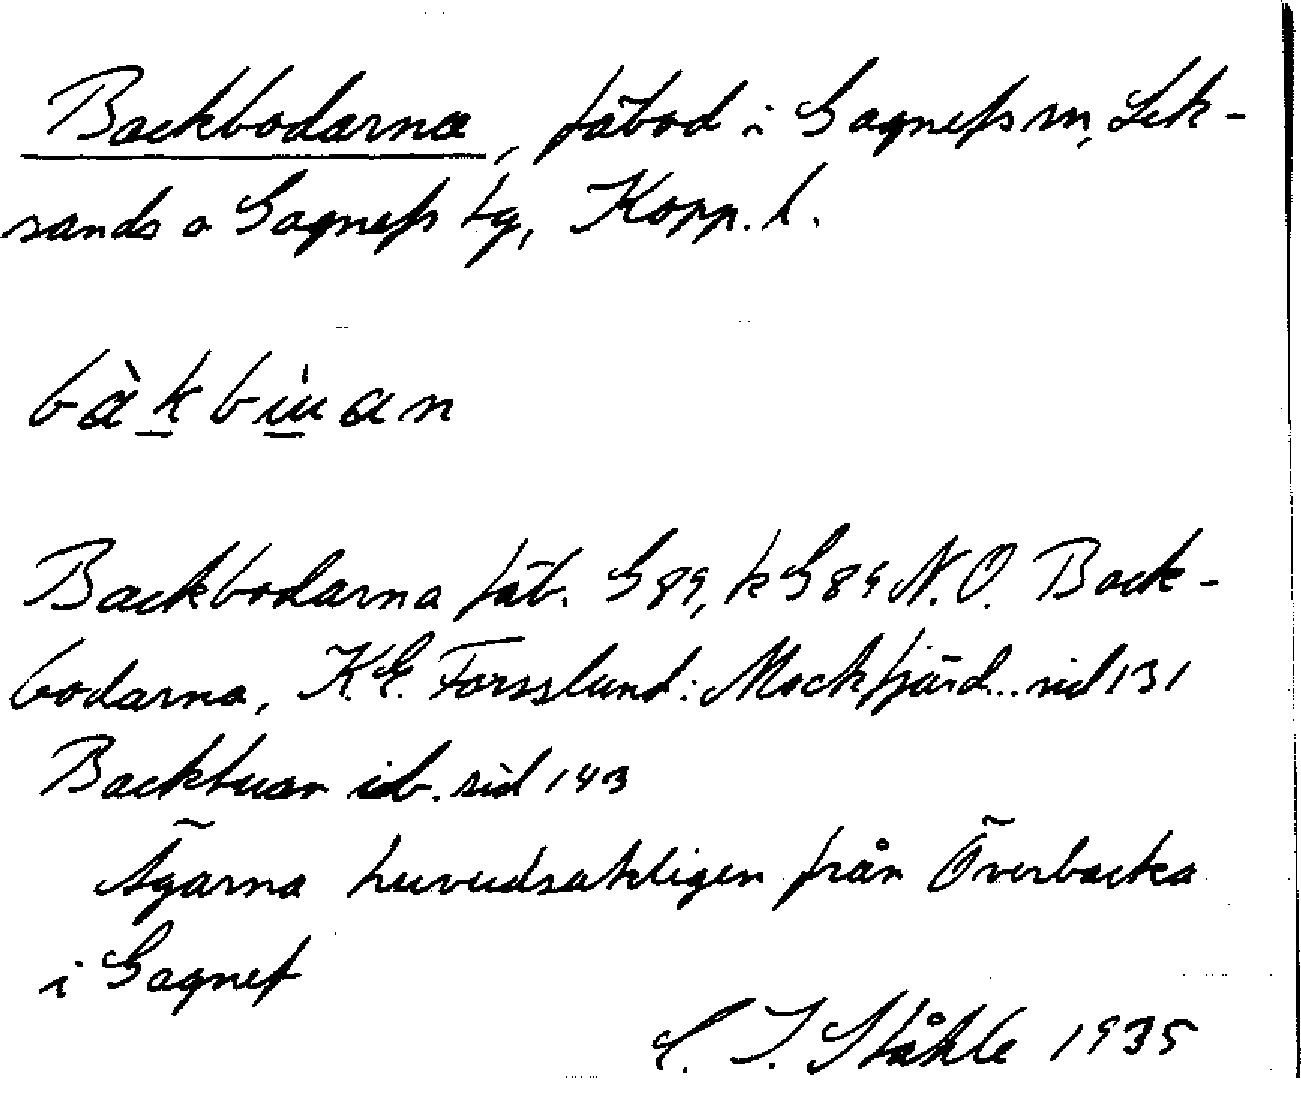 Backbodarna, fäbod i Gagnefs sn, Lek-
sands o Gagnefs tg, Kopp. l.
bàkbu̇an
Backbodarna fäb. G 89, k G 89 N.O. Back-
bodarna, K.E. Forsslund: Mockfjärd.. sid 131
Backbuan ib. sid 143
Ägarna huvudsakligen från Överbacka
i Gagnef
C. I. Ståhle 1935